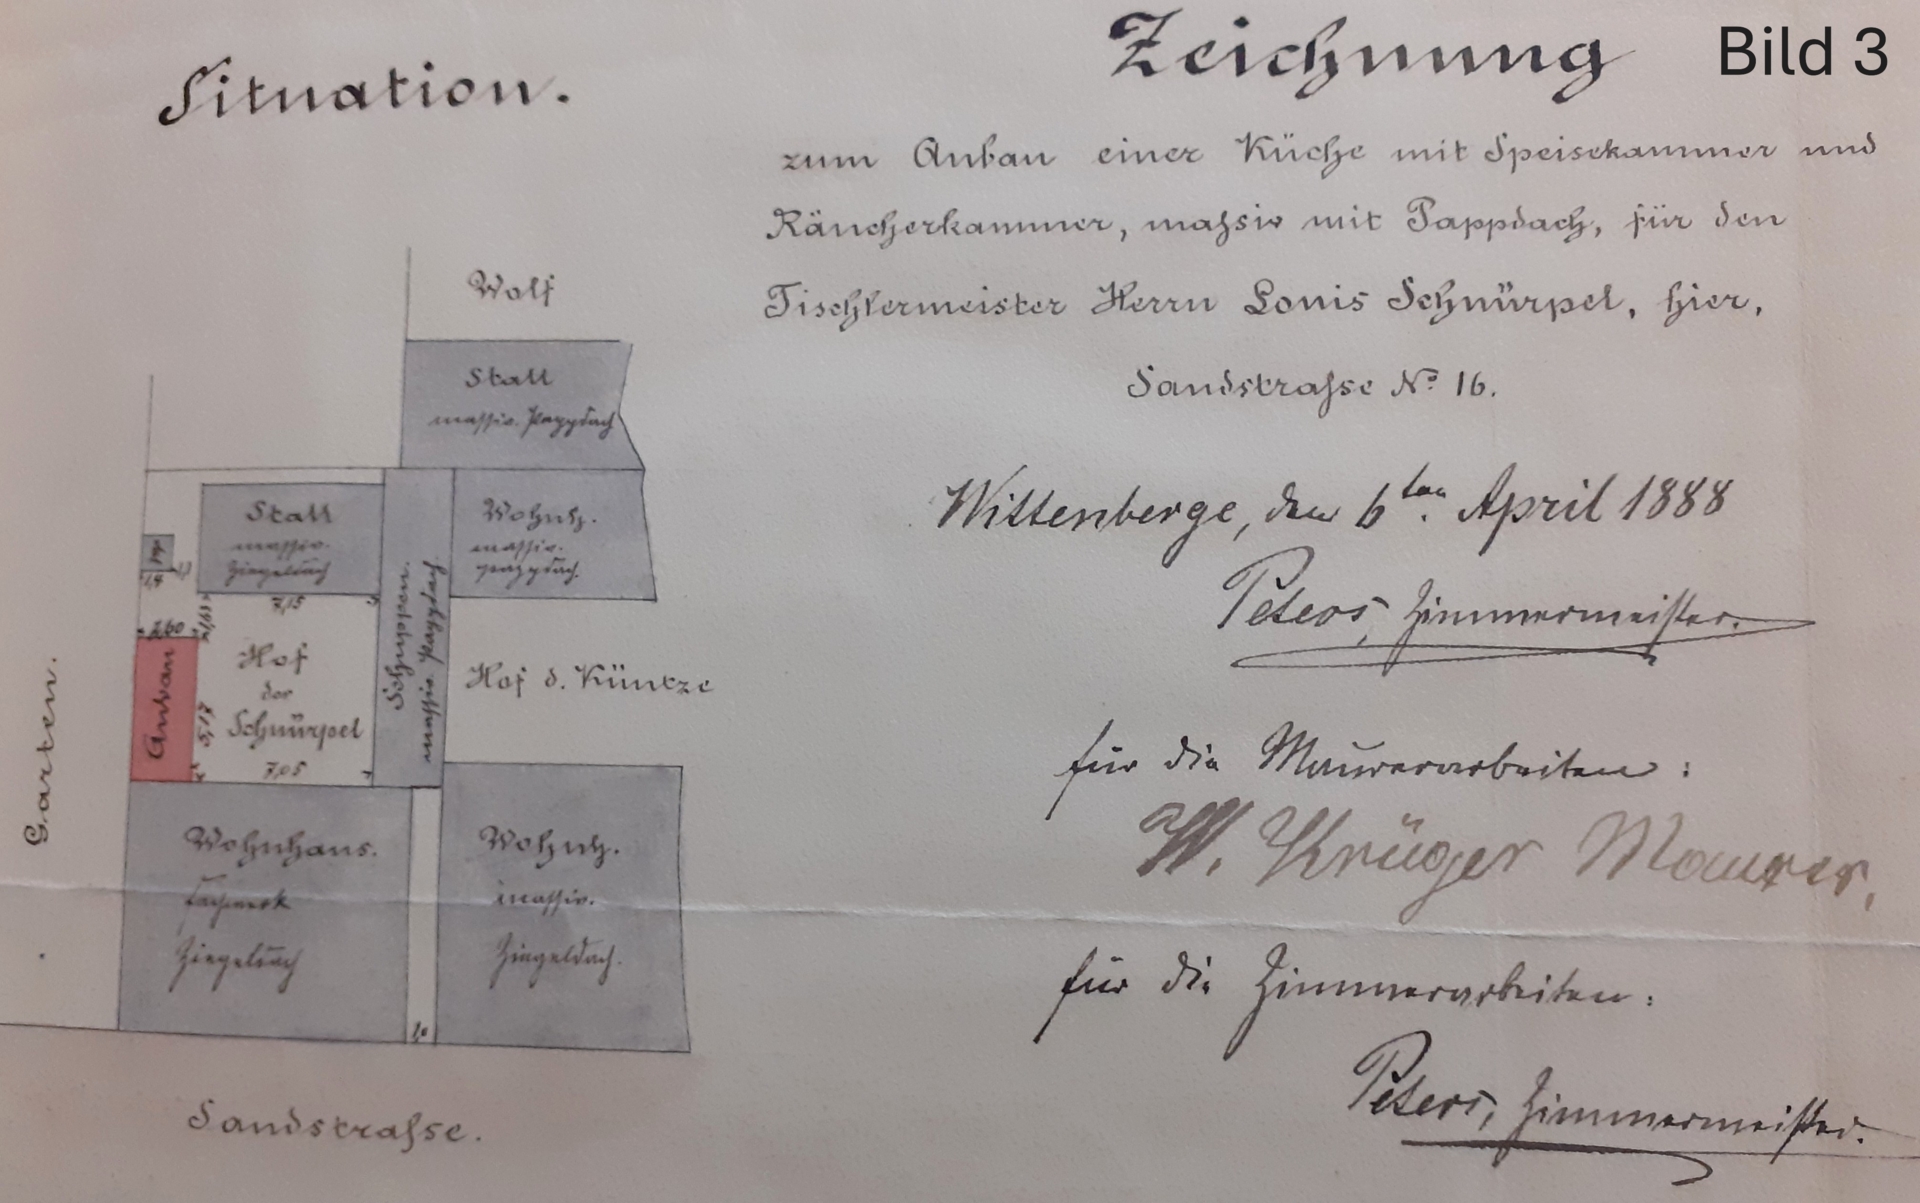 Bild 3
Situation.
Zeichnung
zum Anbau einer Küche mit Speisekammer und
Räucherkammer, maßiv mit Pappdach, für den
Tischlermeister Herrn Louis Schnürpel, hier,
Sandstraße No 16.
Wittenberge, den 6ten April 1888
Peters, Zimmermeister.
für die Maurerarbeiten:
W. Krüger Maurer,
für die Zimmerarbeiten:
Peters, Zimmermeister.
Wolf
Stall
massiv. Pappdach
Stall
massiv.
Ziegeldach
7,15
Schuppen.
massiv. Pappdach
Wohnh.
massiv.
Pappdach.
1,4
2,60
Anbau
5,17
Hof
der
Schnürpel
7,05
Hof d. Küntze
Garten.
Wohnhaus.
Fachwerk
Ziegeldach
Wohnh.
massiv.
Ziegeldach.
Sandstraße.